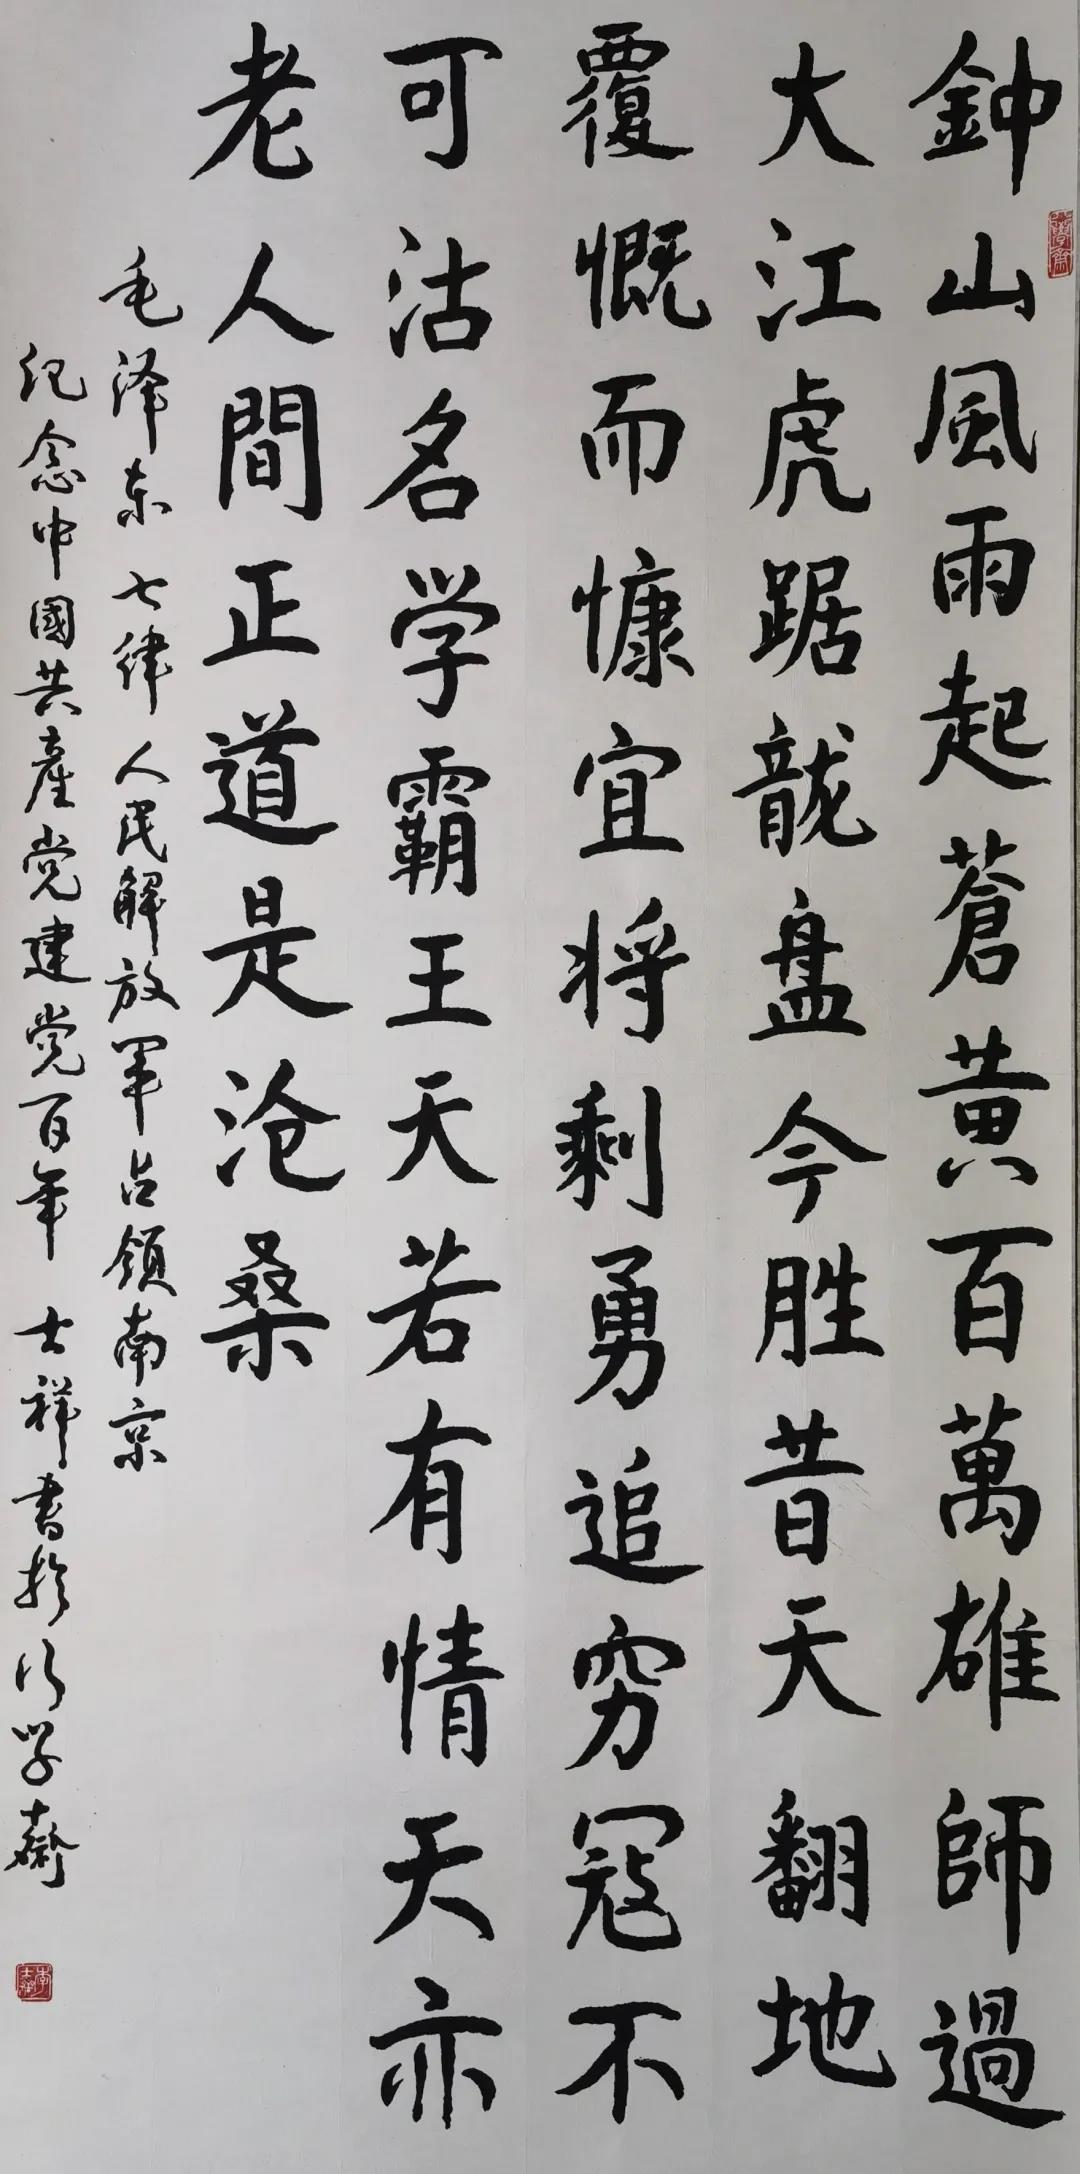 鈡山風雨起蒼黄百萬雄師過
大江虎踞龍盤今胜昔天翻地
覆慨而慷宜将剩勇追穷寇不
可沽名学霸王天若有情天亦
老人間正道是沧桑
毛泽东 七律 人民解放军占領南京
纪念中國共產党建党百年 士祥書於行学斋